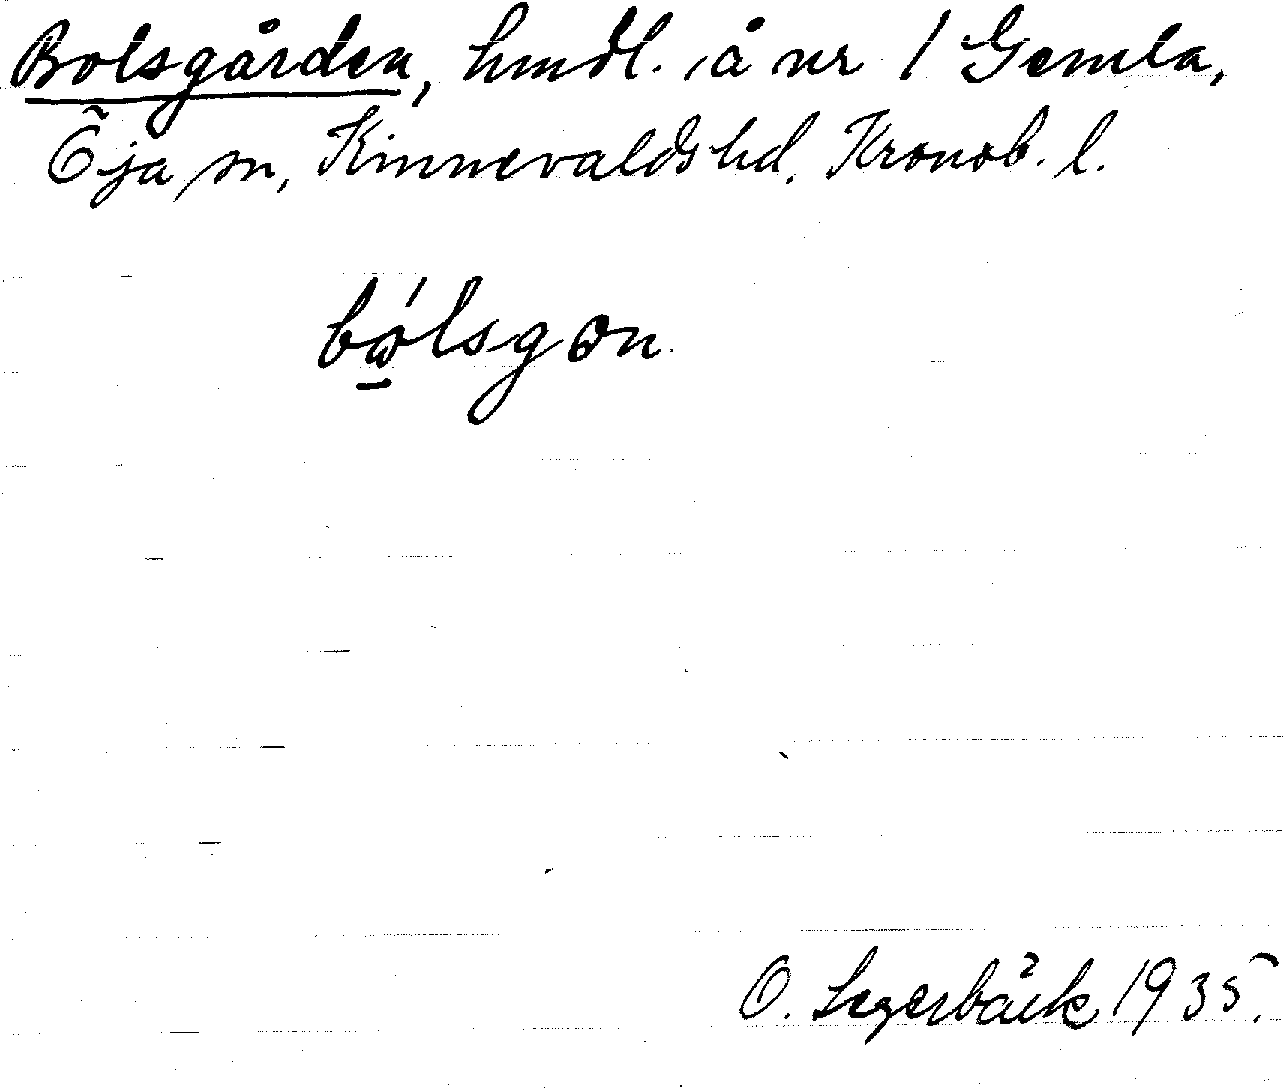 Bolsgården, hmdl. å nr 1 Gemla,
Öja sn, Kinnevalds hd. Kronob. l.
bo̱ĺsgɷn
O. Segerbäck 1935.